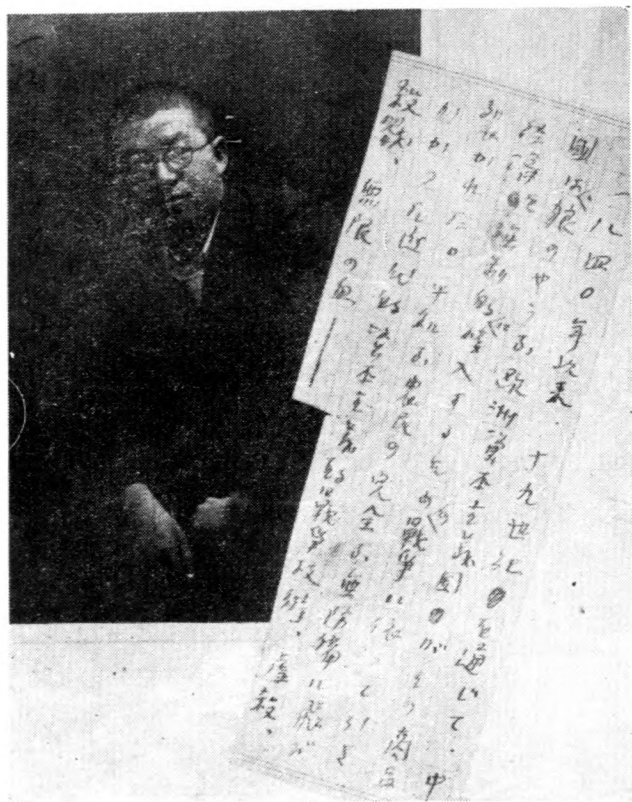 一八四〇年以来、十九世紀を通じて、中
國は狼のやうな欧洲資本主義國の
経済的強制的侵入する 戦争に依って引き
裂かれた。平和な農民の完全な無防備に飛び
かかった近代的資本主義的戦争技術、虐殺、
殺戮、無限の血――